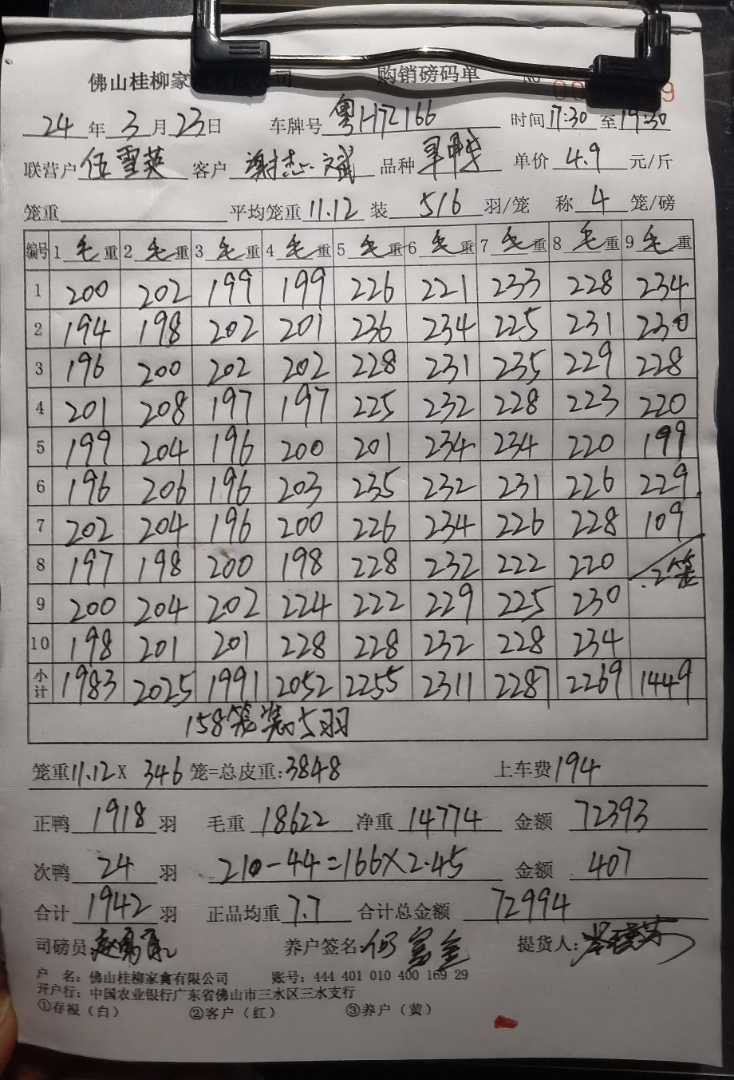 佛山桂柳家 司 购销磅码单 №
24 年 3 月 23 日 车牌号 粤H72166 时间 17:30 至 19:30
联营户 伍雪英 客户 谢志斌 品种 单价 4.9 元/斤
笼重 平均笼重 11.12 装 5/6 羽/笼 称 4 笼/磅
编号 1 毛 重 2 毛 重 3 毛 重 4 毛 重 5 毛 重 6 毛 重 7 毛 重 8 毛 重 9 毛 重
1 200 202 199 199 226 221 233 228 234
2 194 198 202 201 236 234 225 231 230
3 196 200 202 202 228 231 235 229 228
4 201 208 197 197 225 232 228 223 220
5 199 204 196 200 201 234 234 220 199
6 196 206 196 203 235 232 231 226 229
7 202 204 196 200 226 234 226 228 109
8 197 198 200 198 228 232 222 220 2笼
9 200 204 202 224 222 229 225 230
10 198 201 201 228 228 232 228 234
小计 1983 2025 1991 2052 2255 2311 2287 2269 1449
158笼装5羽
笼重 11.12 X 346 笼=总皮重: 3848 上车费 194
正鸭 1918 羽 毛重 18622 净重 14774 金额 72393
次鸭 24 羽 210-44=166×2.45 金额 407
合计 1942 羽 正品均重 7.7 合计总金额 72994
司磅员: 养户签名: 何富全 提货人:
户 名: 佛山桂柳家禽有限公司 账号: 444 401 010 400 169 29
开户行: 中国农业银行广东省佛山市三水区三水支行
①存根（白） ②客户（红） ③养户（黄）